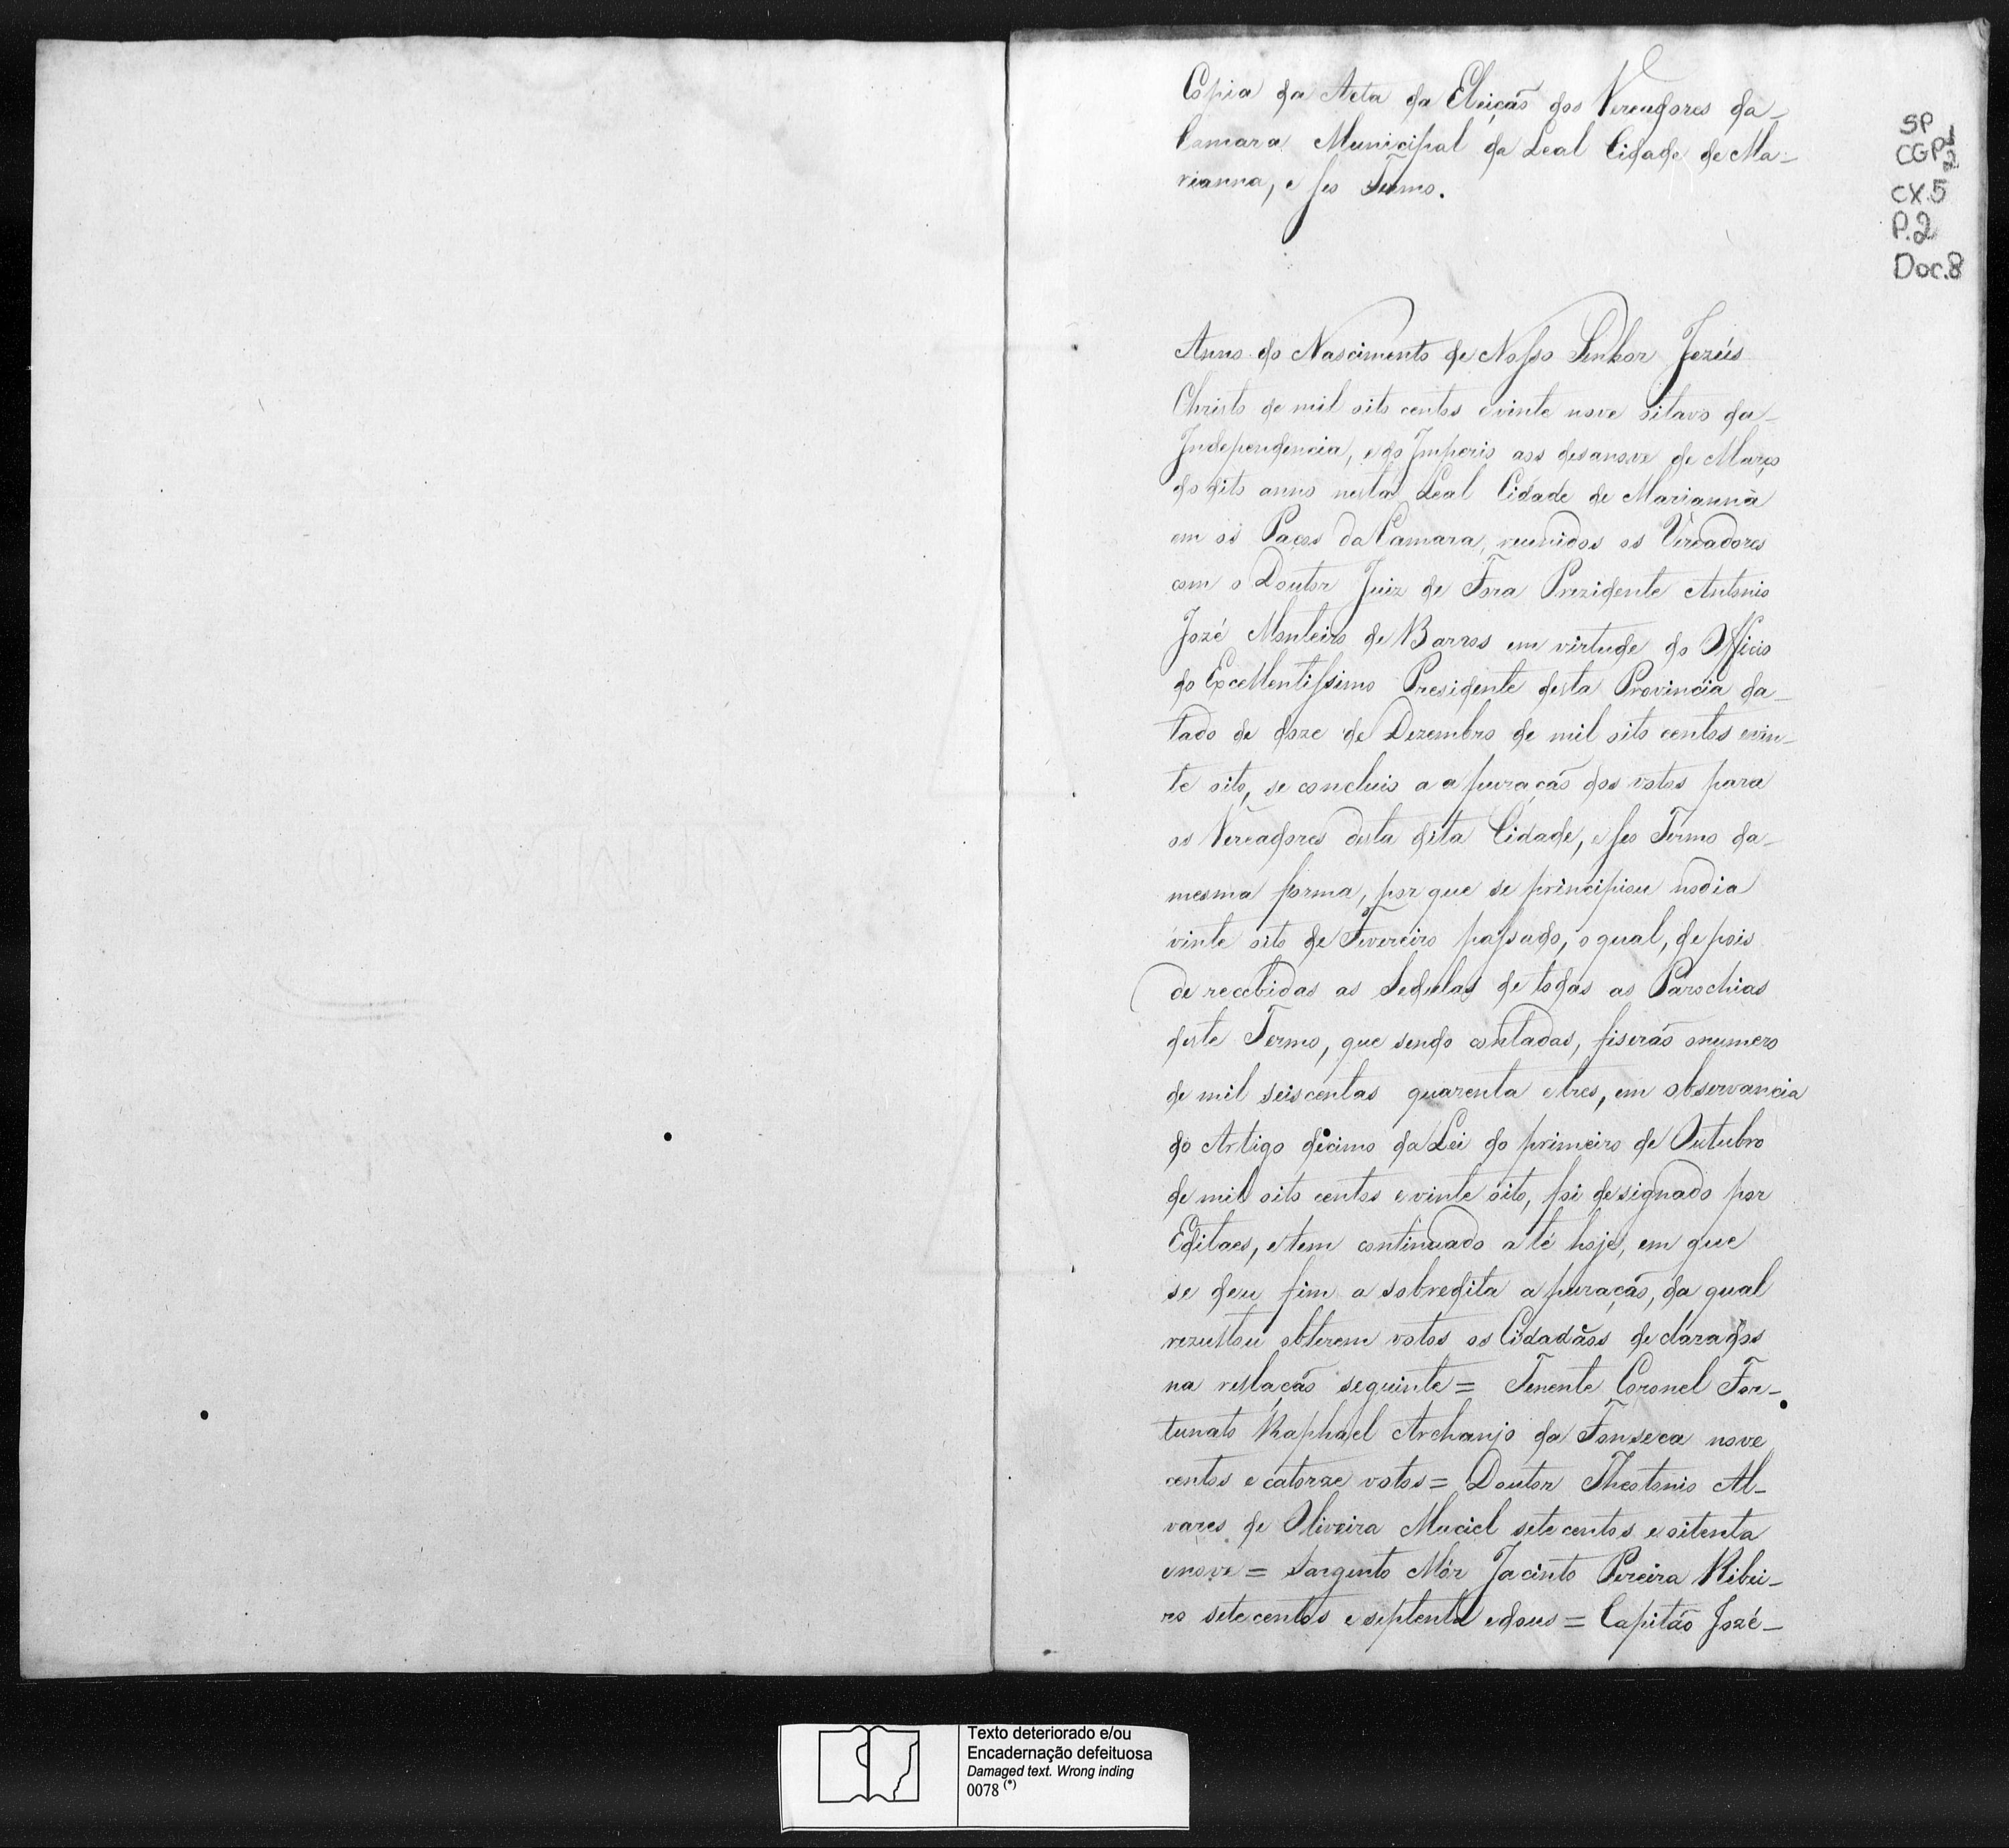 Copia da Acta da Eleição dos Vereadores da
Camara Municipal da Leal Cidade de Ma-
rianna, e seo Termo.
SP
CGP 1/2
CX.5
P.2
Doc.8
Anno do Nascimento de Nosso Senhor Jezús
Christo de mil oito centos e vinte nove oitavo da
Independencia, e do Imperio aos desanove de Março
do dito anno nesta Leal Cidade de Marianna
em os Paços da Camara, reunidos os Vereadores
com o Doutor Juiz de Fora Prezidente Antonio
Jozé Monteiro de Barros em virtude do Officio
do Excellentissimo Presidente desta Provincia da-
tado de doze de Dezembro de mil oito centos e vin-
te oito, se concluio a apuração dos votos para
os Vereadores desta dita Cidade, e seo Termo da
mesma forma, por que se principiou no dia
vinte oito de Fevereiro passado, o qual, depois
de recebidas as Sedulas de todas as Parochias
deste Termo, que sendo contadas, fiserão o numero
de mil seis centas quarenta e tres, em observancia
do Artigo decimo da Lei do primeiro de Outubro
de mil oito centos e vinte oito, foi designado por
Editaes, e tem continuado até hoje, em que
se deu fim a sobredita apuração, da qual
rezultou obterem votos os Cidadãos declarados
na rellação seguinte = Tenente Coronel For-
tunato Raphael Archanjo da Fonseca nove
centos e catorze votos = Doutor Theotonio Al-
vares de Oliveira Maciel sete centos e oitenta
e nove = Sargento Mór Jacinto Pereira Ribei-
ro sete centos e septenta e dous = Capitão Jozé
Texto deteriorado e/ou
Encadernação defeituosa
Damaged text. Wrong inding
0078 (*)